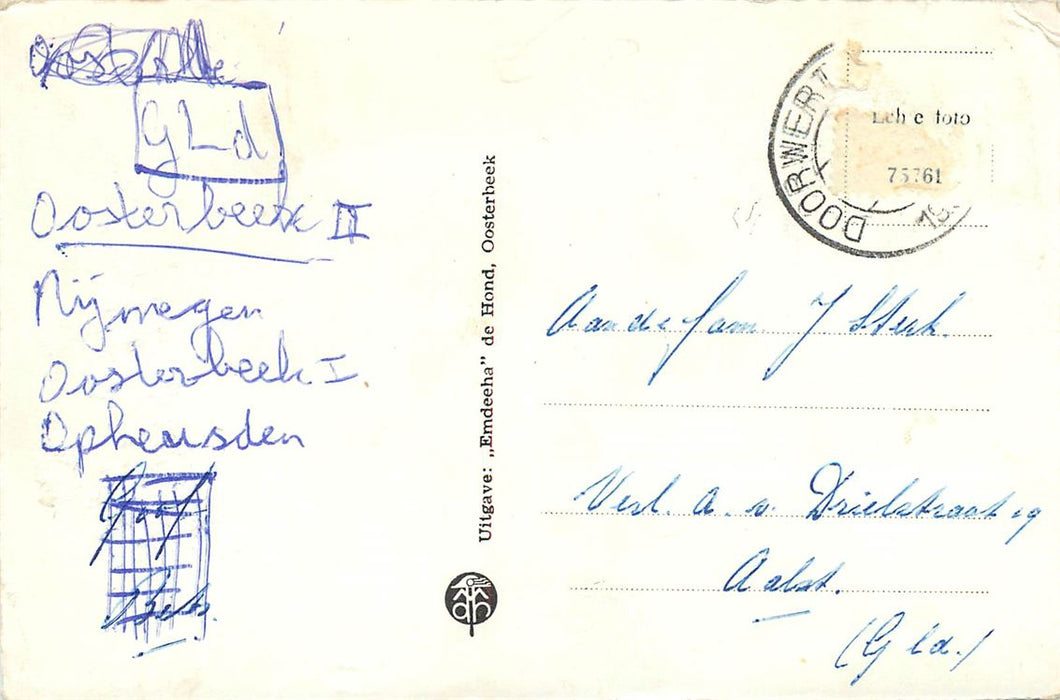 GLd
Oosterbeek II
Nijmegen
Oosterbeek I
Opheusden
Bets.
Uitgave: „Emdeeha” de Hond, Oosterbeek
DOORWERT
foto
75761
Aan de fam J Sterk.
Verl. A. v. Drielstraat 19
Aalst.
(Gld.)